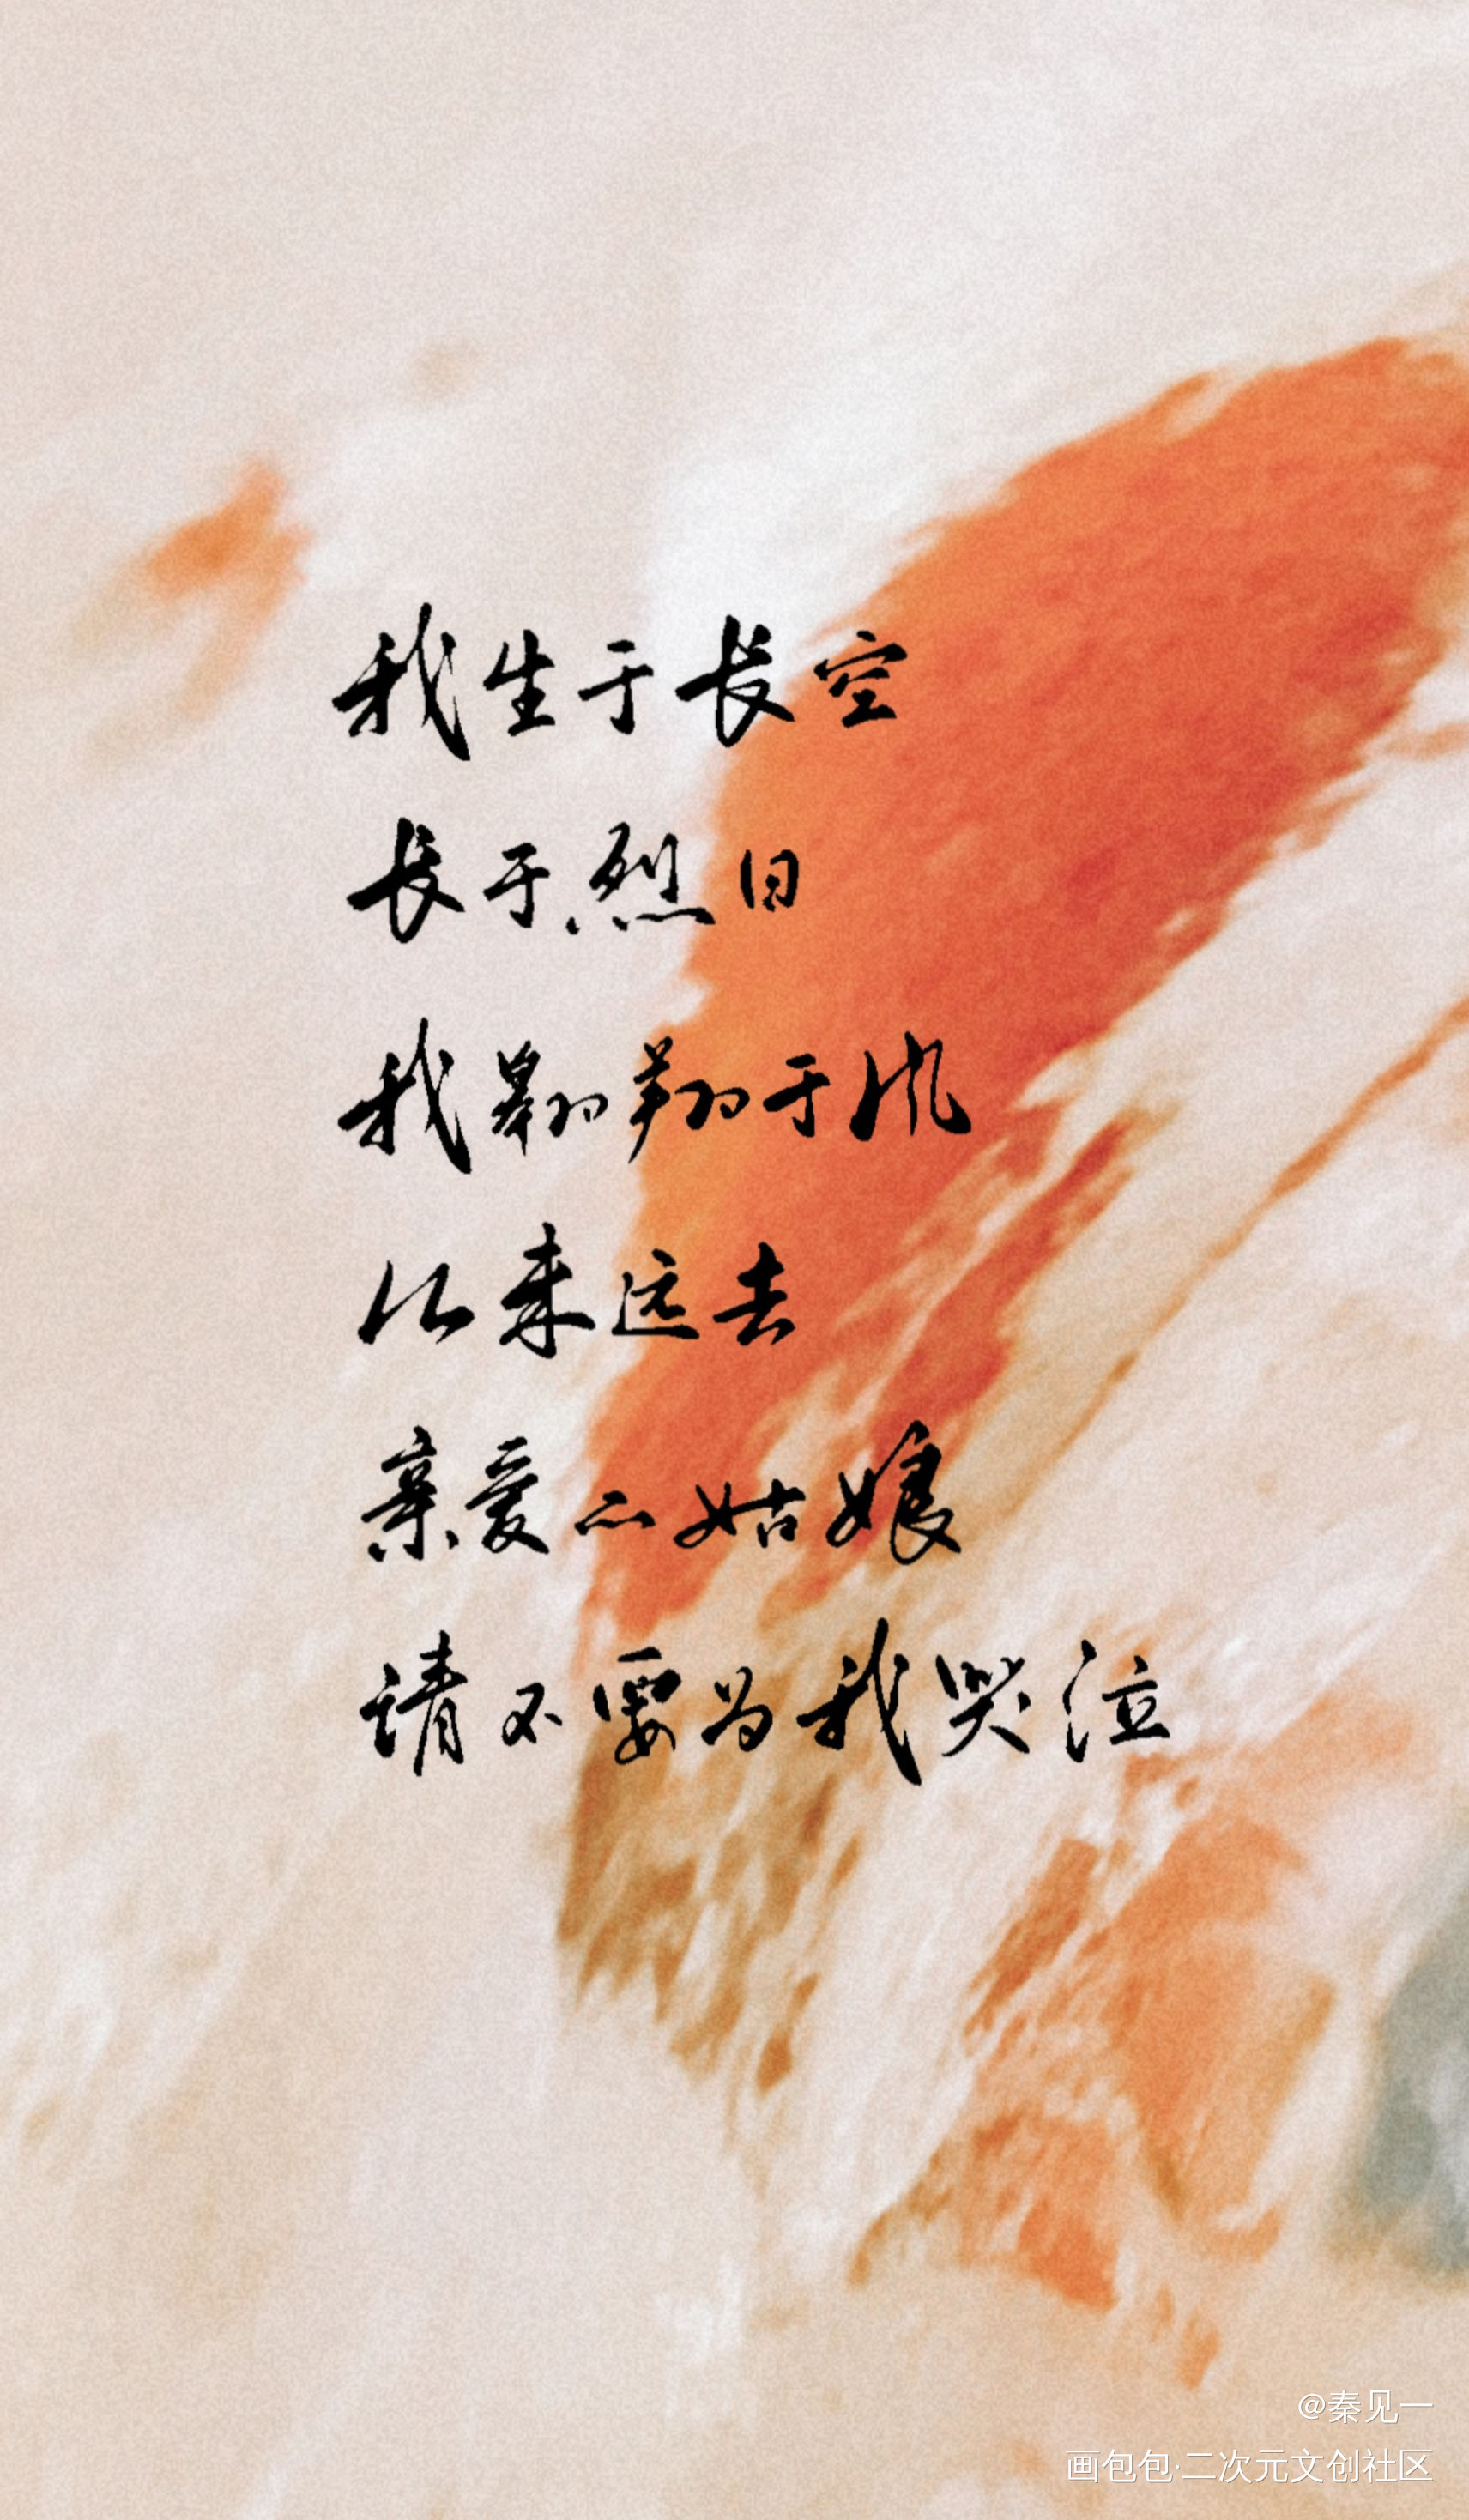 我生于长空
长于烈日
我翱翔于风
从未远去
亲爱的姑娘
请不要为我哭泣
@秦见一
画包包·二次元文创社区